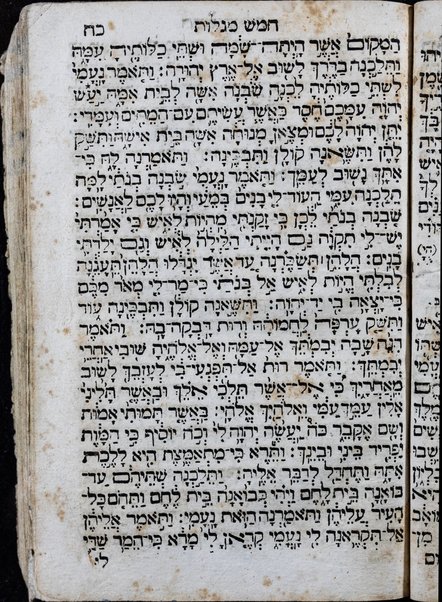 חמש מגלות כח
המקום אשר היתה־שמה ושתי כלותיה עמה
ותלכנה בדרך לשוב אל־ארץ יהודה: ותאמר נעמי
לשתי כלותיה לכנה שבנה אשה לבית אמה יעש
יהוה עמכם חסד כאשר עשיתם עם־המתים ועמדי:
יתן יהוה לכם ומצאן מנוחה אשה בית אישה ותשק
להן ותשאנה קולן ותבכינה: ותאמרנה לה כי־
אתך נשוב לעמך: ותאמר נעמי שבנה בנתי למה
תלכנה עמי העוד לי בנים במעי והיו לכם לאנשים:
שבנה בנתי לכן כי זקנתי מהיות לאיש כי אמרתי
יש־לי תקוה גם הייתי הלילה לאיש וגם ילדתי
בנים: הלהן תשברנה עד אשר יגדלו הלהן תעגנה
לבלתי היות לאיש אל בנתי כי־מר־לי מאד מכם
כי־יצאה בי יד־יהוה: ותשאנה קולן ותבכינה עוד
ותשק ערפה לחמותה ורות דבקה בה: ותאמר
הנה שבה יבמתך אל־עמה ואל־אלהיה שובי אחרי
יבמתך: ותאמר רות אל־תפגעי־בי לעזבך לשוב
מאחריך כי אל־אשר תלכי אלך ובאשר תליני
אלין עמך עמי ואלהיך אלהי: באשר תמותי אמות
ושם אקבר כה יעשה יהוה לי וכה יוסיף כי המות
יפריד ביני ובינך: ותרא כי־מתאמצת היא ללכת
אתה ותחדל לדבר אליה: ותלכנה שתיהם עד־
בואנה בית לחם ויהי כבואנה בית לחם ותהם כל־
העיר עליהן ותאמרנה הזאת נעמי: ותאמר אליהן
אל־תקראנה לי נעמי קראן לי מרא כי־המר שדי
לי